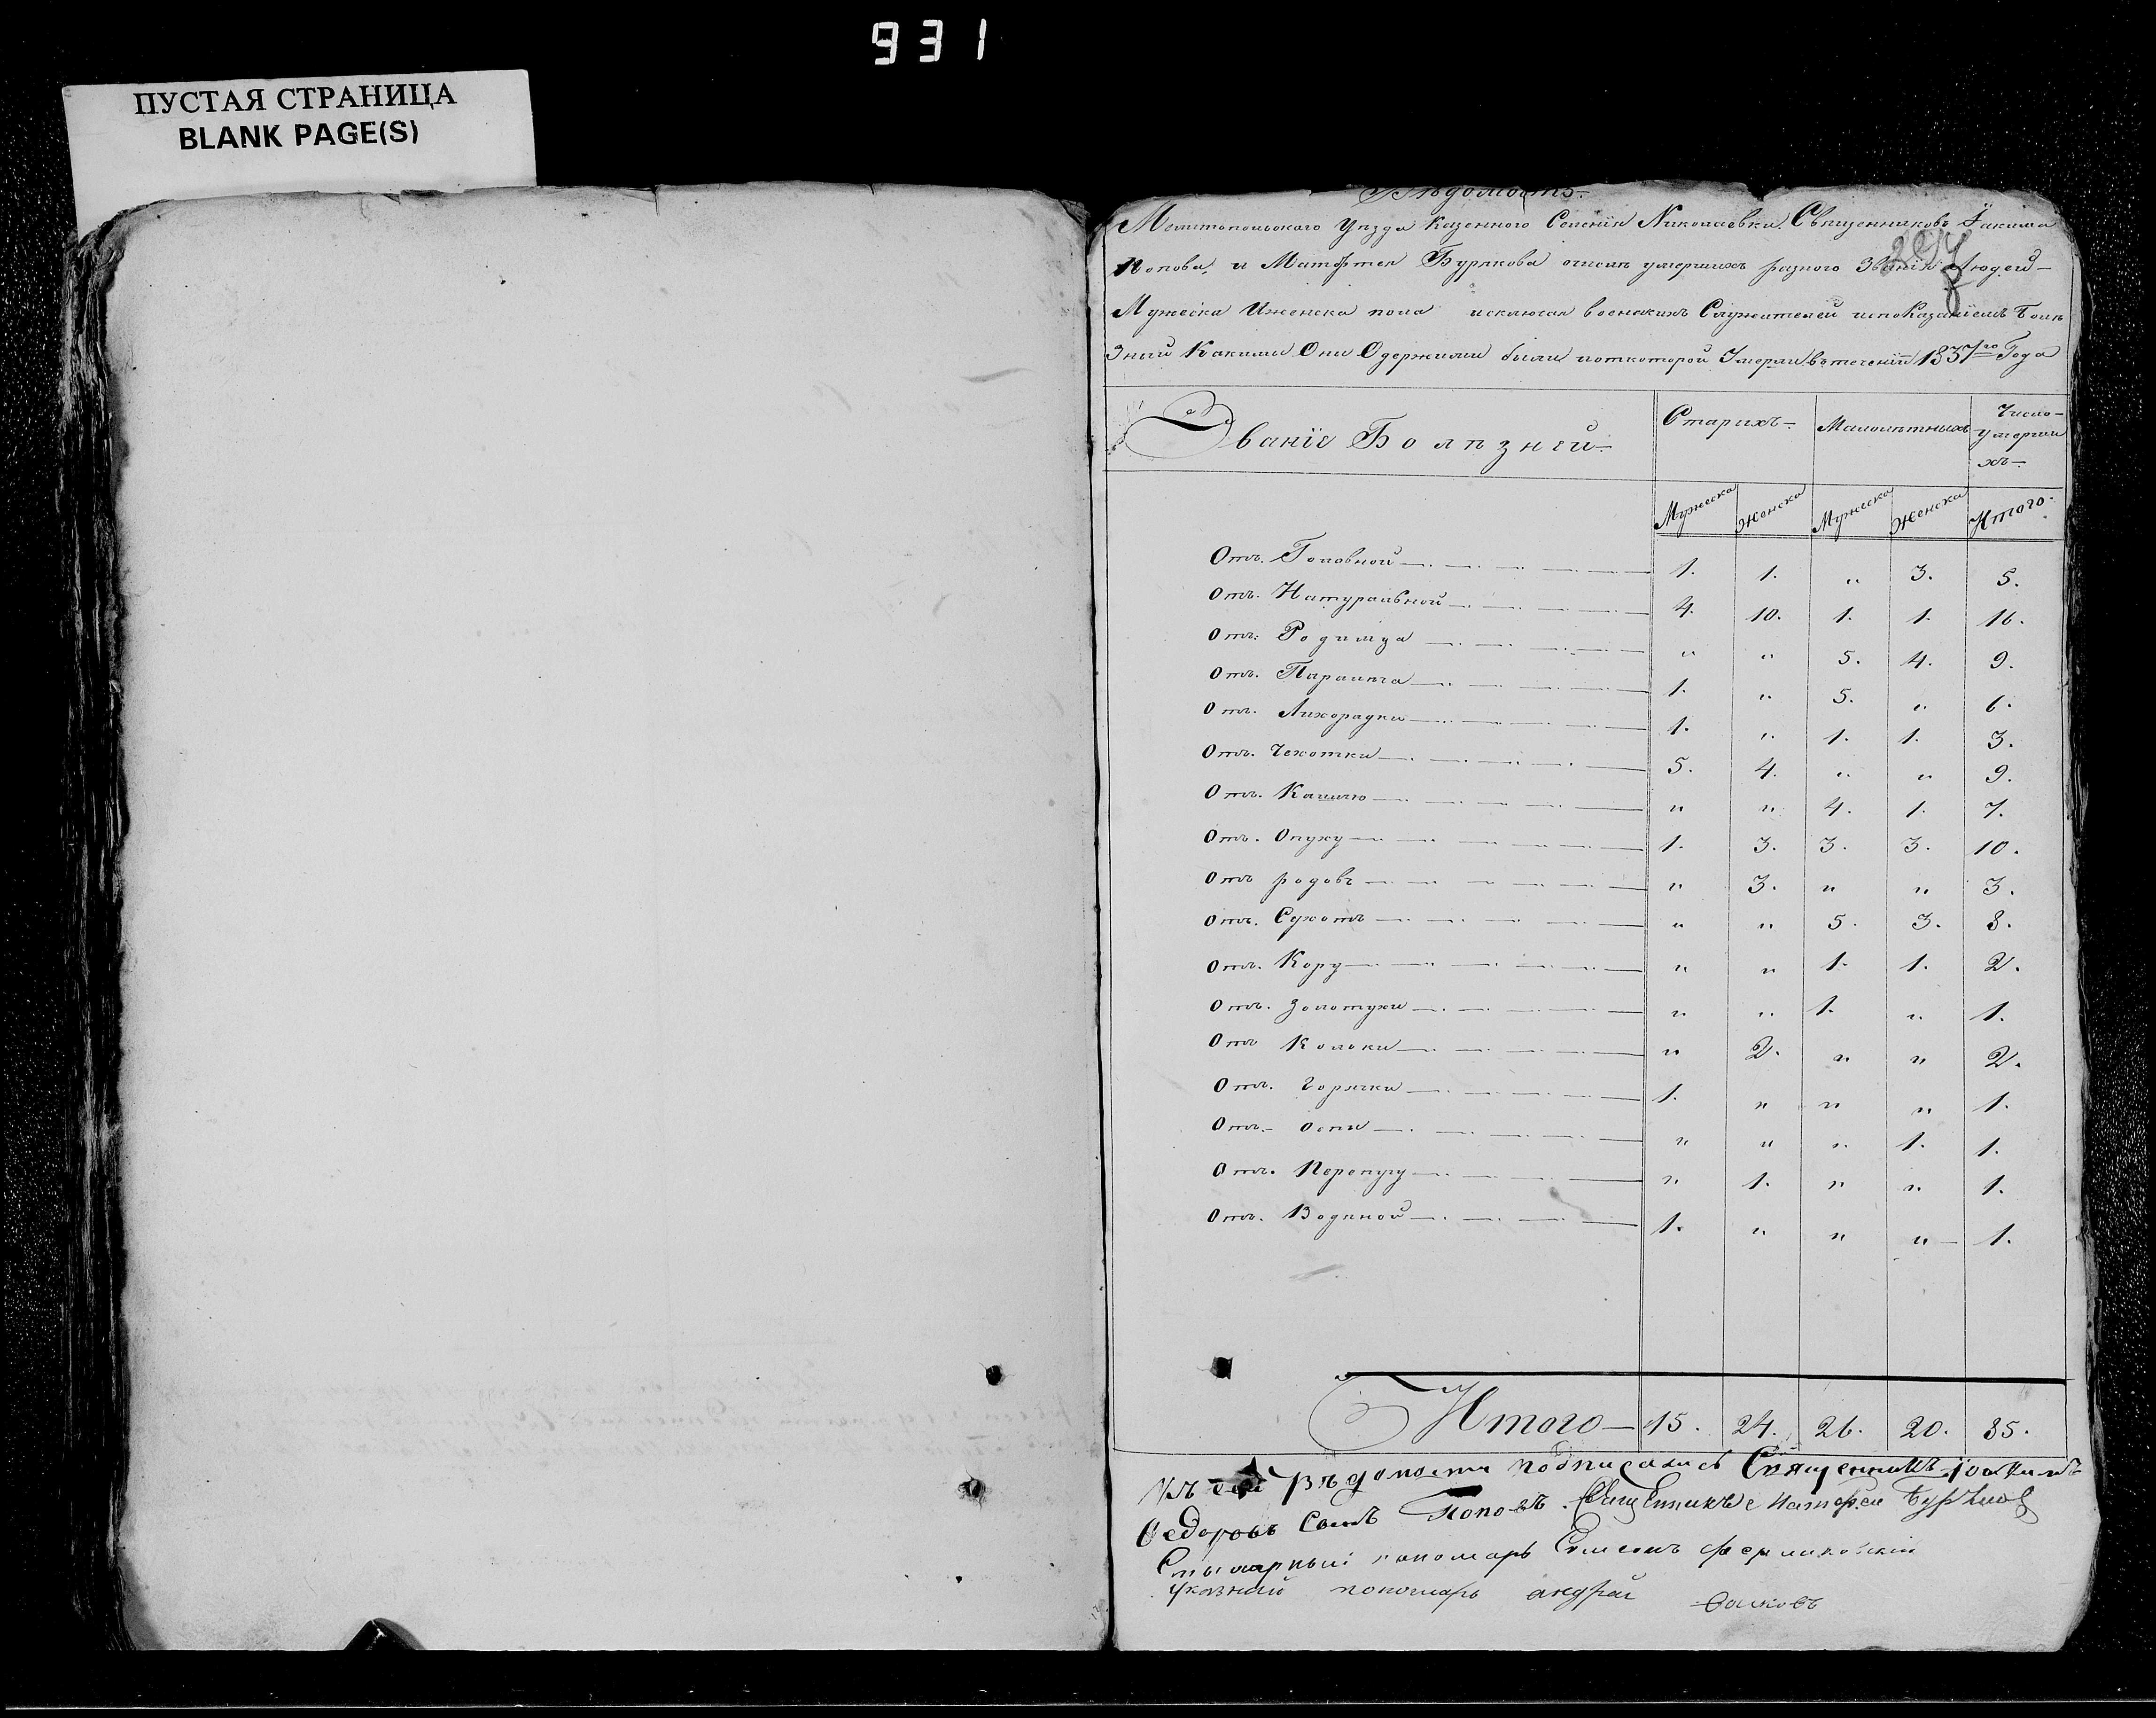 931
ПУСТАЯ СТРАНИЦА
BLANK PAGE(S)
Вѣдомость
Мелитопольскаго уѣзда Казенного Селенія Николаевки Священниковъ Іакима
Попова и Матфея Бурякова о числѣ умершихъ разного Званія Людей
Мужеска И женска пола исключая воєнскихъ Служителей и споКазаніемъ Болѣ
зней Какими Они Одержими были и от которой Умерли в теченіи 1837го Года
Званіе Болѣзней
Старихъ
Малолѣтныхъ
Число умерши хъ
Мужеска Женска Мужеска Женска Итого
Отъ Головной 1. 1. " 3. 5.
Отъ Натуральной 4. 10. 1. 1. 16.
Отъ Родимца " " 5. 4. 9.
Отъ Паралича 1. " 5. " 6.
Отъ Лихорадки 1. " 1. 1. 3.
Отъ Чехотки 5. 4. " " 9.
Отъ Кашлю " " 4. 1. 7.
Отъ Опуху 1. 3. 3. 3. 10.
Отъ родовъ " 3. " " 3.
Отъ Сухотъ " " 5. 3. 8.
Отъ Кору " " 1. 1. 2.
Отъ Золотухи " " 1. " 1.
Отъ Кольки " 2. " " 2.
Отъ Горячки 1. " " " 1.
Отъ Оспи " " " 1. 1.
Отъ Перепугу " 1. " " 1.
Отъ Водяной 1. " " " 1.
Итого 15. 24. 26. 20. 85.
Къ сей Вѣдомости подписались Священникъ Іоакимъ
Федоровъ Сынъ Поповъ Священникъ Матфей Буряковъ
пономарь Симеонъ
указний пономарь андрей